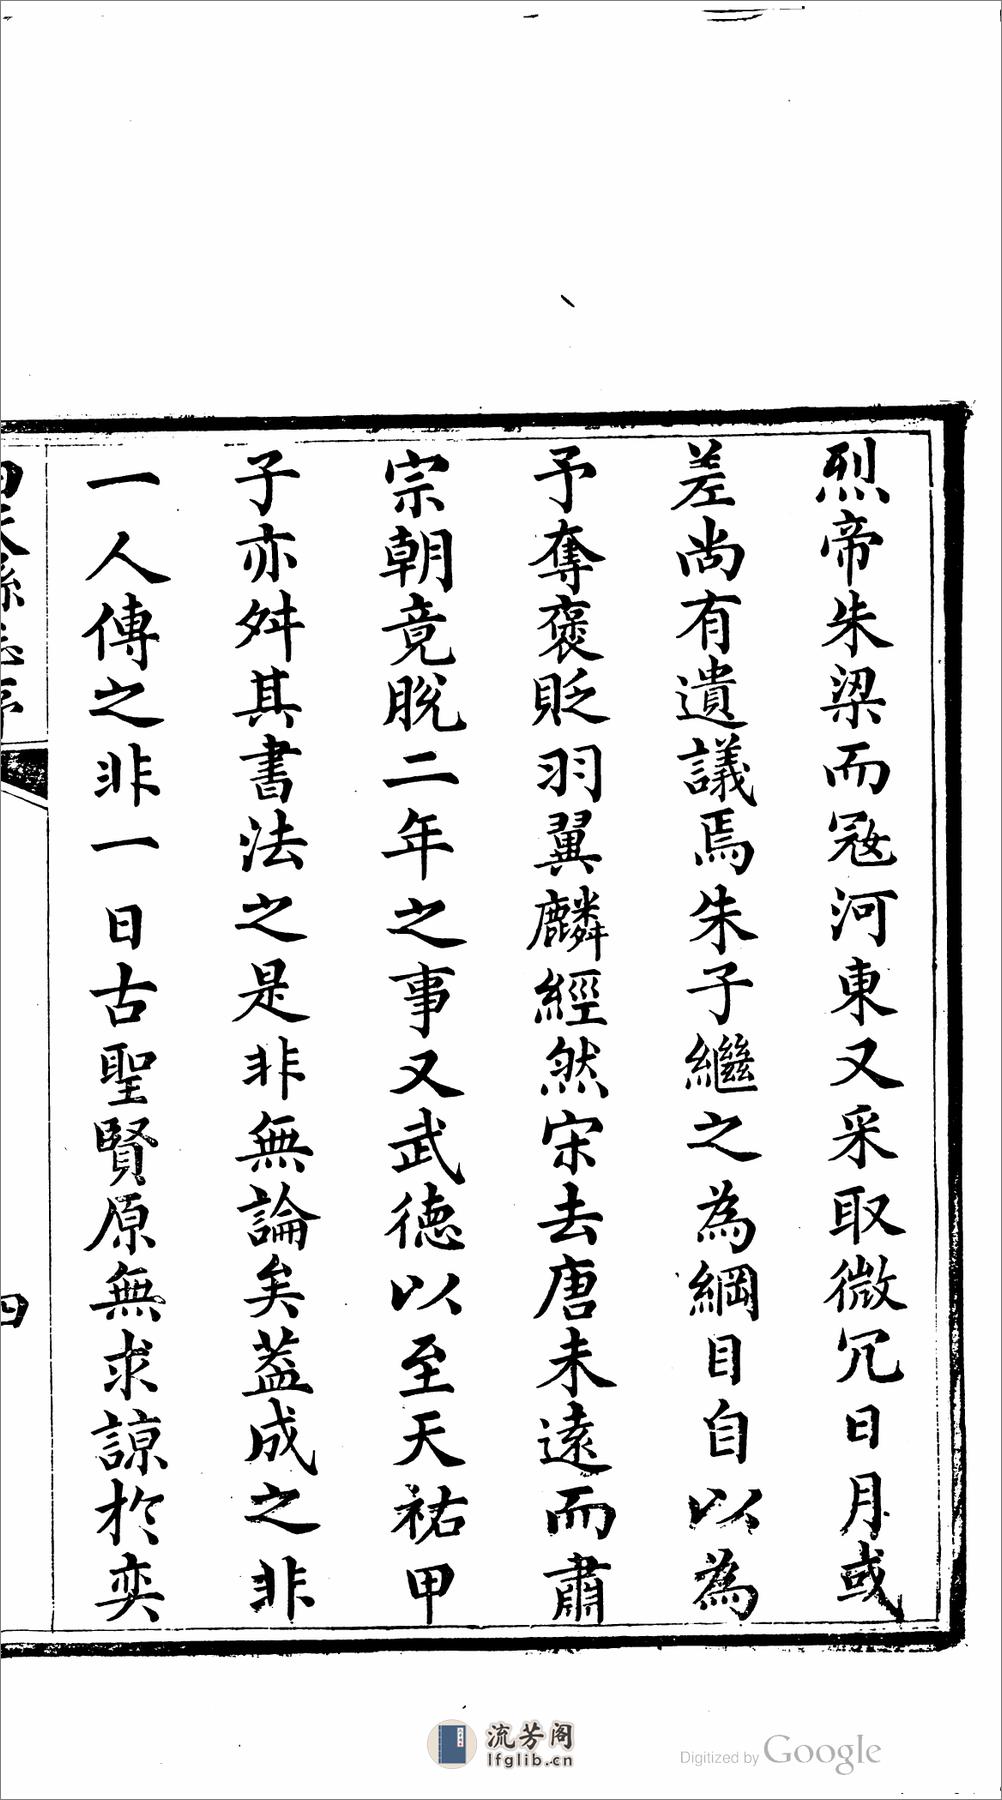 烈帝朱梁而冦河東又采取微冗日月或
差尚有遺議焉朱子繼之為綱目自以為
予奪褒貶羽翼麟經然宋去唐未遠而肅
宗朝竟脫二年之事又武德以至天祐甲
子亦舛其書法之是非無論矣葢成之非
一人傳之非一日古聖賢原無求諒於奕
縣志序
四
流芳阁
lfglib.cn
Digitized by Google